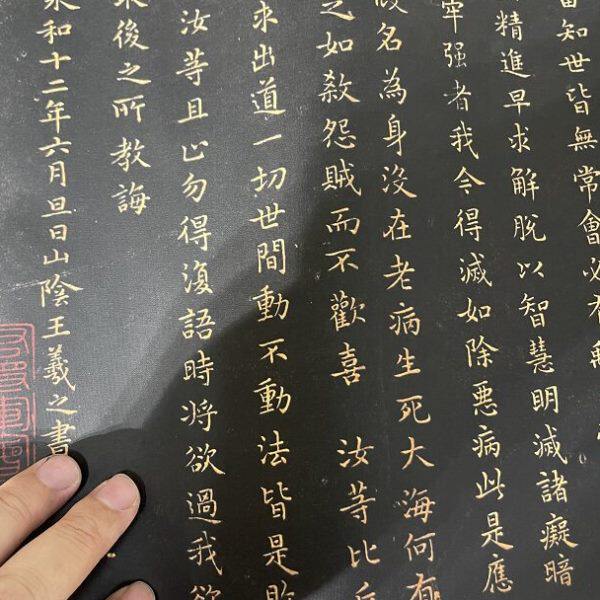 當知世皆無常會必有
精進早求解脫以智慧明滅諸癡暗
牢强者我今得滅如除惡病此是應
假名為身沒在老病生死大海何有
之如殺怨賊而不歡喜 汝等比丘
求出道一切世間動不動法皆是敗
汝等且止勿得復語時將欲過我欲
後之所教誨
永和十二年六月旦日山陰王羲之書